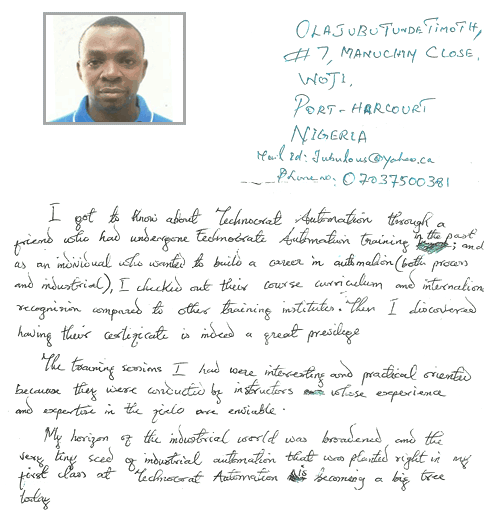 OLAJUBUTUNDE TIMOTH,
#7, MANUCHIM CLOSE,
WOJI,
PORT-HARCOURT
NIGERIA
Mail id: Jubulous@yahoo.ca
Phone no: 07037500381
I got to know about Technocrat Automation through a
friend who had undergone Technocrate Automation training in the past; and
as an individual who wanted to build a career in automation (both process
and industrial), I checked out their course curriculum and internation
recognision compared to other training institutes. Then I discovered
having their certificate is indeed a great previlege
The training sessions I had were interesting and practical oriented
because they were conducted by instructors whose experience
and expertise in the field are enviable.
My horizon of the industrial world was broadened and the
very tiny seed of industrial automation that was planted right in my
first class at Technocrat Automation is becoming a big tree
today